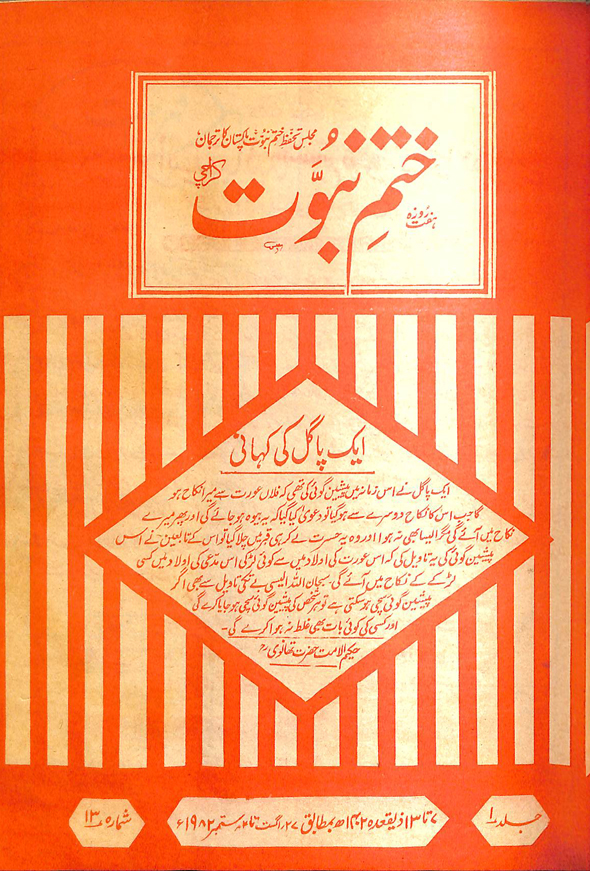 مجلس تحفظ ختم نبوت پاکستان کا ترجمان
ختمِ نبوّت
کراچی
ہفت روزہ
ایک پاگل کی کہانی
ایک پاگل نے اس زمانہ میں پیشین گوئی کی تھی کہ فلاں عورت سے میرا نکاح ہو
گا جب اس کا نکاح دوسرے سے ہو گیا تو دعویٰ کیا گیا کہ یہ بیوہ ہو جائے گی اور پھر میرے
نکاح میں آئے گی مگر ایسا بھی نہ ہوا اور وہ یہ حسرت لے کر ہی قبر میں چلا گیا تو اس کے تابعین نے اس
پیشین گوئی کی یہ تاویل کی کہ اس عورت کی اولاد میں سے کوئی لڑکی اس مدعی کی اولاد میں کسی
لڑکے کے نکاح میں آئے گی۔ سبحان اللہ ایسی بے تکی تاویل سے بھی اگر
پیشین گوئی سچی ہو سکتی ہے تو ہر شخص کی پیشین گوئی سچی ہو جایا کرے گی
اور کسی کی کوئی بات بھی غلط نہ ہوا کرے گی۔
حکیم الامت حضرت تھانوی رح
جلد ۱
۷ تا ۱۳ ذیقعدہ ۱۴۰۲ھ بمطابق ۲۷ اگست تا ۲ ستمبر ۱۹۸۲ء
شمارہ ۱۳